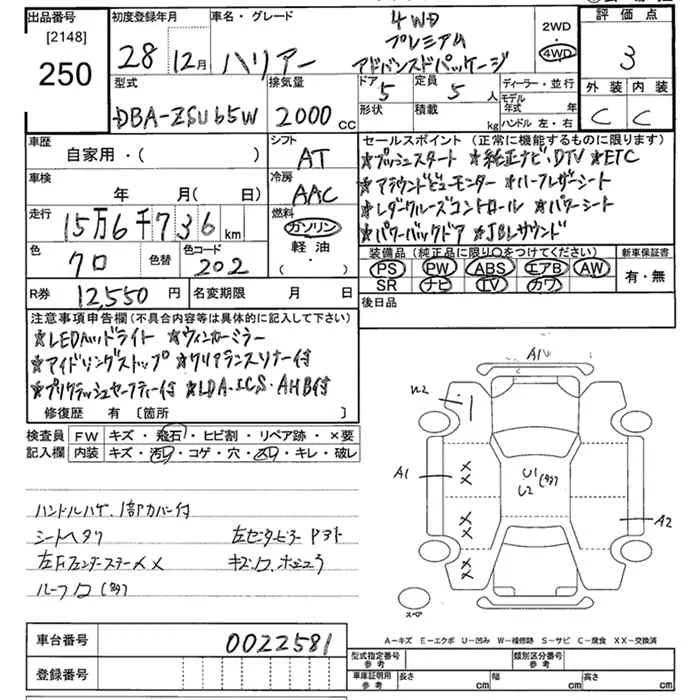 出品番号
[2148]
250
初度登録年月
28 12月
車名・グレード
ハリアー
4WD
プレミアム
アドバンスドパッケージ
2WD
・
4WD
評価点
3
外装 内装
C C
型式
DBA-ZSU65W
排気量
2000 CC
ドア
5
定員
5 人
形状
積載
kg
ディーラー・並行
モデル年式 年
ハンドル 左・右
車歴
自家用・( )
シフト
AT
車検
年 月( 日)
冷房
AAC
走行
15万6千736 km
燃料
ガソリン
軽油・
( ・ )
色
クロ
色替
色コード
202
R券 12,550 円
名変期限 月 日
セールスポイント (正常に機能するものに限ります)
★プッシュスタート ★純正ナビ、DTV ★ETC
★アラウンドビューモンター ★ハーフレザーシート
★レダークルーズコントロール ★パワーシート
★パワーバックドア ★JBLサウンド
装備品 (純正品に限り○をつけてください)
新車保証書
PS PW ABS エアB AW
SR ナビ TV カワ
有・無
後日品
注意事項申告欄(不具合内容等は具体的に記入して下さい)
★LEDヘッドライト ★ウィンカーミラー
★アイドリングストップ ★クリアランスソナー付
★プリクラッシュセーフティー付 ★LDA・ICS・AHB付
修復歴 有 〔箇所 〕
検査員
記入欄
FW キズ・飛石・ヒビ割・リペア跡・×要
内装 キズ・汚レ・コゲ・穴・スレ・キレ・破レ
ハンドルハゲ、1部カバー付
シートヘタリ
左センターピラー
左Fフェンダーステー××
ルーフ
A1
W2
A1
U1
U2
A2
スペア
A-キズ E-エクボ U-凹み W-補修跡 S-サビ C-腐食 XX-交換済
車台番号 0022581
登録番号
型式指定番号
参考
類別区分番号
参考
車庫証明用
参考
長さ cm
幅 cm
高さ cm